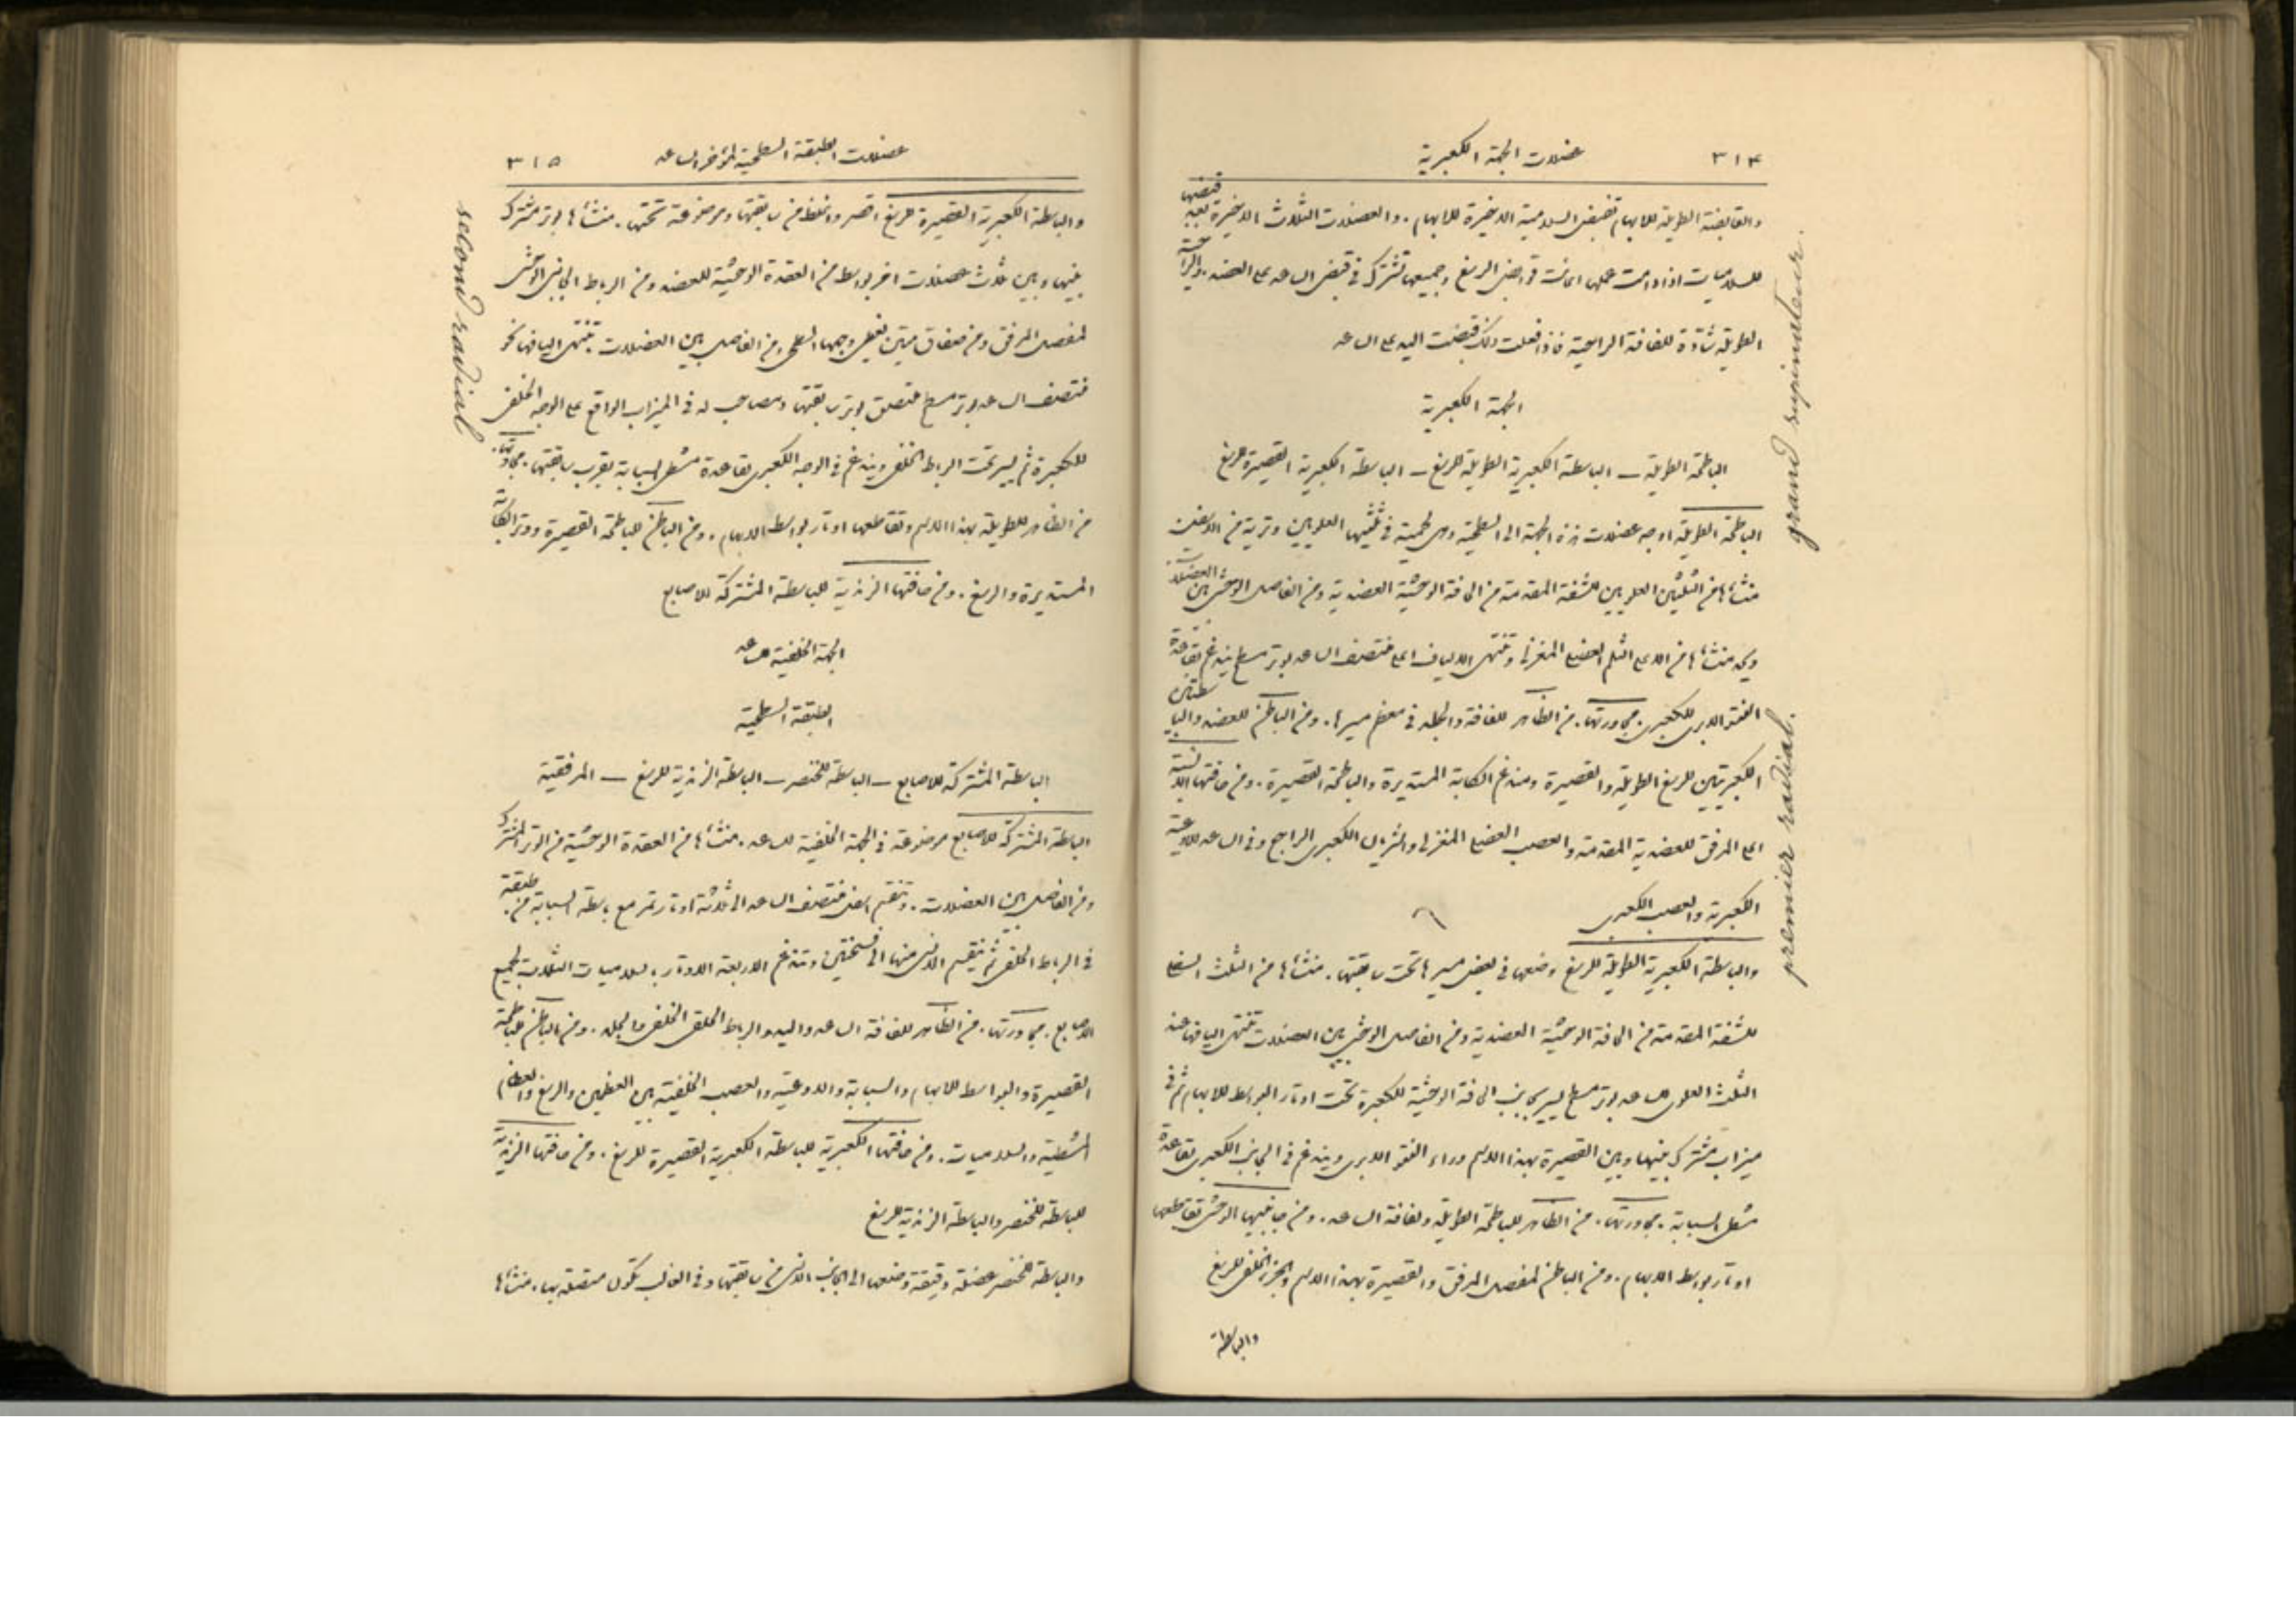 ٣١٤ عضلات الجهة الكعبرية
والقابضة الطويلة للابهام تقبض السلامية الاخيرة للابهام . والعضلات الثلاث الاخيرة بعد قبضها
للسلاميات اذا دامت عملها اعانت قوابض الرسغ وجميعها تشترك في قبض الساعد على العضد . والراحية
الطويلة شادّة للفافة الراحية فاذا فعلت ذلك قبضت اليد على الساعد
الجهة الكعبرية
الباطحة الطويلة – الباسطة الكعبرية الطويلة للرسغ – الباسطة الكعبرية القصيرة للرسغ
الباطحة الطويلة اوجه عضلات هذه الجهة الى السطحية وهي لحمية في ثلثيها العلويين وترية في الاسفل
منشأها من الثلثين العلويين للشفة المقدمة من الحافة الوحشية العضدية ومن الفاصل الوحشي بين العضلات
ويحد منشأها من الاعلى الثلم العضلي المغزلي وتنتهي الالياف اعلى منتصف الساعد بوتر مسطح يندغم بقاعدة
النتو الابري للكعبري . مجاورتها . من الظاهر للفافة والجلد في معظم مسيرها . ومن الباطن للعضد والباسطتين
الكعبريتين للرسغ الطويلة والقصيرة ومندغم الكابة المستديرة والباطحة القصيرة . ومن حافتها الانسية
اعلى المرفق للعضدية المقدمة والعصب العضلي المغزلي والشريان الكعبري الراجع وفي الساعد للاوعية
الكعبرية والعصب الكعبري
والباسطة الكعبرية الطويلة للرسغ وضعها في بعض مسيرها تحت سابقتها . منشأها من الثلث السفلي
للشفة المقدمة من الحافة الوحشية العضدية ومن الفاصل الوحشي بين العضلات تنتهي اليافها عند
الثلث العلوي للساعد بوتر مسطح يسير بجانب الحافة الوحشية للكعبرة تحت اوتار البواسط للابهام ثم في
ميزاب مشترك بينها وبين القصيرة بهذا الاسم وراء النتو الابري ويندغم في الجانب الكعبري لقاعدة
مشطي السبابة . مجاورتها . من الظاهر للباطحة الطويلة ولفافة الساعد . ومن جانبها الوحشي تقاطعها
اوتار بواسط الابهام . ومن الباطن لمفصل المرفق والقصيرة بهذا الاسم والجزء الخلفي للرسغ
والباسطة
grand supinateur.
premier radial.
عضلات الطبقة السطحية لمؤخر الساعد ٣١٥
والباسطة الكعبرية القصيرة للرسغ اقصر واغلظ من سابقتها وموضوعة تحتها . منشأها بوتر مشترك
بينها وبين ثلاث عضلات اخر بواسط من العقدة الوحشية للعضد ومن الرباط الجانبي الوحشي
لمفصل المرفق ومن صفاق متين يغطي وجهها السطحي ومن الفاصل بين العضلات . تنتهي اليافها نحو
منتصف الساعد بوتر مسطح ملتصق بوتر سابقتها ومصاحب له في الميزاب الواقع على الوجه الخلفي
للكعبرة ثم يسير تحت الرباط الخلفي ويندغم في الوجه الكعبري لقاعدة مشطي السبابة بقرب سابقتها . مجاورتها .
من الظاهر للطويلة بهذا الاسم وتقاطعها اوتار بواسط الابهام . ومن الباطن للباطحة القصيرة ووتر الكابة
المستديرة والرسغ . ومن حافتها الزندية للباسطة المشتركة للاصابع
الجهة الخلفية للساعد
الطبقة السطحية
الباسطة المشتركة للاصابع – الباسطة للخنصر – الباسطة الزندية للرسغ – المرفقية
الباسطة المشتركة للاصابع موضوعة في الجهة الخلفية للساعد . منشأها من العقدة الوحشية من الوتر المشترك
ومن الفاصل بين العضلات . وتنقسم اسفل منتصف الساعد الى ثلاثة اوتار تمر مع باسطة السبابة من طبقة
في الرباط الخلفي ثم ينقسم الانسي منها الى قسمين وتندغم الاربعة الاوتار بالسلاميات الثلاث لجميع
الاصابع . مجاورتها . من الظاهر للفافة الساعد واليد والرباط الحلقي الخلفي والجلد . ومن الباطن للباطحة
القصيرة والبواسط للابهام والسبابة والاوعية والعصب الخلفية بين العظمين والرسغ والعظام
المشطية والسلاميات . ومن حافتها الكعبرية للباسطة الكعبرية القصيرة للرسغ . ومن حافتها الزندية
للباسطة للخنصر والباسطة الزندية للرسغ
والباسطة للخنصر عضلة دقيقة وضعها الى الجانب الانسي من سابقتها وفي الغالب تكون متصلة بها . منشأها
second radial